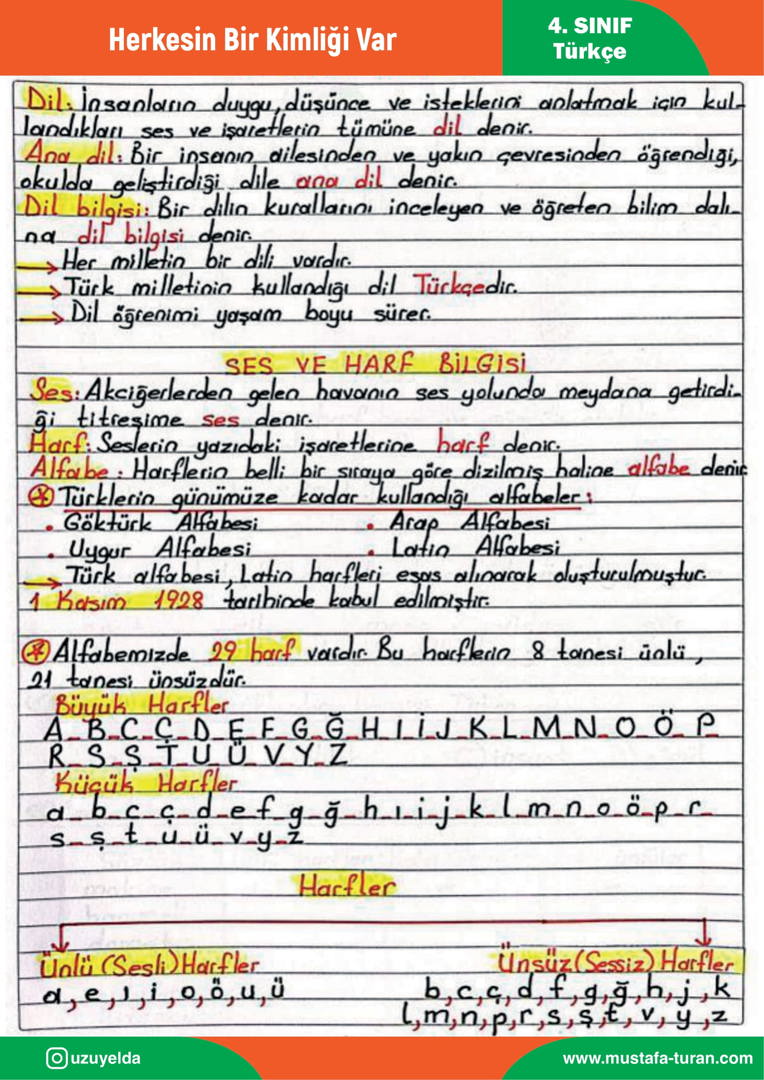 Herkesin Bir Kimliği Var
4. SINIF
Türkçe
Dil: İnsanların duygu, düşünce ve isteklerini anlatmak için kul-
landıkları ses ve işaretlerin tümüne dil denir.
Ana dil: Bir insanın ailesinden ve yakın çevresinden öğrendiği,
okulda geliştirdiği dile ana dil denir.
Dil bilgisi: Bir dilin kurallarını inceleyen ve öğreten bilim dalı-
na dil bilgisi denir.
→ Her milletin bir dili vardır.
→ Türk milletinin kullandığı dil Türkçedir.
→ Dil öğrenimi yaşam boyu sürer.
SES VE HARF BİLGİSİ
Ses: Akciğerlerden gelen havanın ses yolunda meydana getirdi-
ği titreşime ses denir.
Harf: Seslerin yazıdaki işaretlerine harf denir.
Alfabe: Harflerin belli bir sıraya göre dizilmiş haline alfabe denir
* Türklerin günümüze kadar kullandığı alfabeler:
• Göktürk Alfabesi • Arap Alfabesi
• Uygur Alfabesi • Latin Alfabesi
→ Türk alfabesi, Latin harfleri esas alınarak oluşturulmuştur.
1 Kasım 1928 tarihinde kabul edilmiştir.
* Alfabemizde 29 harf vardır. Bu harflerin 8 tanesi ünlü,
21 tanesi ünsüzdür.
Büyük Harfler
A-B-C-Ç-D-E-F-G-Ğ-H-I-İ-J-K-L-M-N-O-Ö-P
R-S-Ş-T-U-Ü-V-Y-Z
Küçük Harfler
a-b-c-ç-d-e-f-g-ğ-h-ı-i-j-k-l-m-n-o-ö-p-r-
s-ş-t-u-ü-v-y-z
Harfler
Ünlü (Sesli) Harfler Ünsüz (Sessiz) Harfler
a, e, ı, i, o, ö, u, ü b, c, ç, d, f, g, ğ, h, j, k
l, m, n, p, r, s, ş, t, v, y, z
uzuyelda
www.mustafa-turan.com